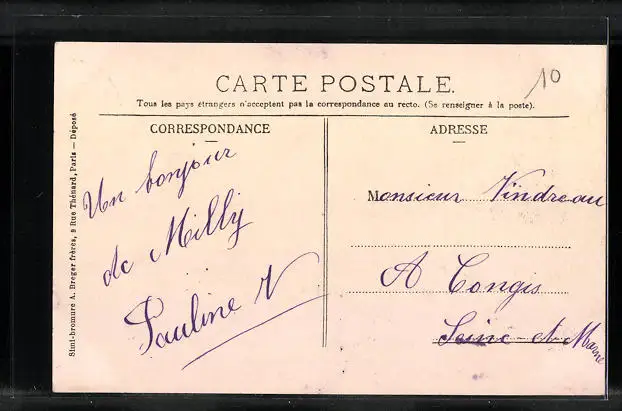 CARTE POSTALE.
10
Tous les pays étrangers n'acceptent pas la correspondance au recto. (Se renseigner à la poste).
CORRESPONDANCE
Un bonjour
de Milly
Pauline V
ADRESSE
Monsieur Vindreau
A Congis
Seine-et-Marne
Simi-bromure A. Breger frères, 9 Rue Thénard, Paris — Déposé